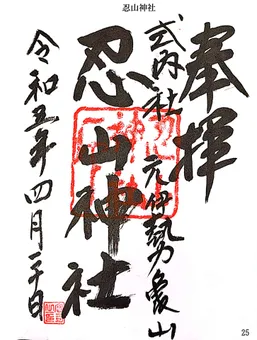 忍山神社
奉拝
式内社 元伊勢 亀山
忍山神社
令和五年四月二十日
25